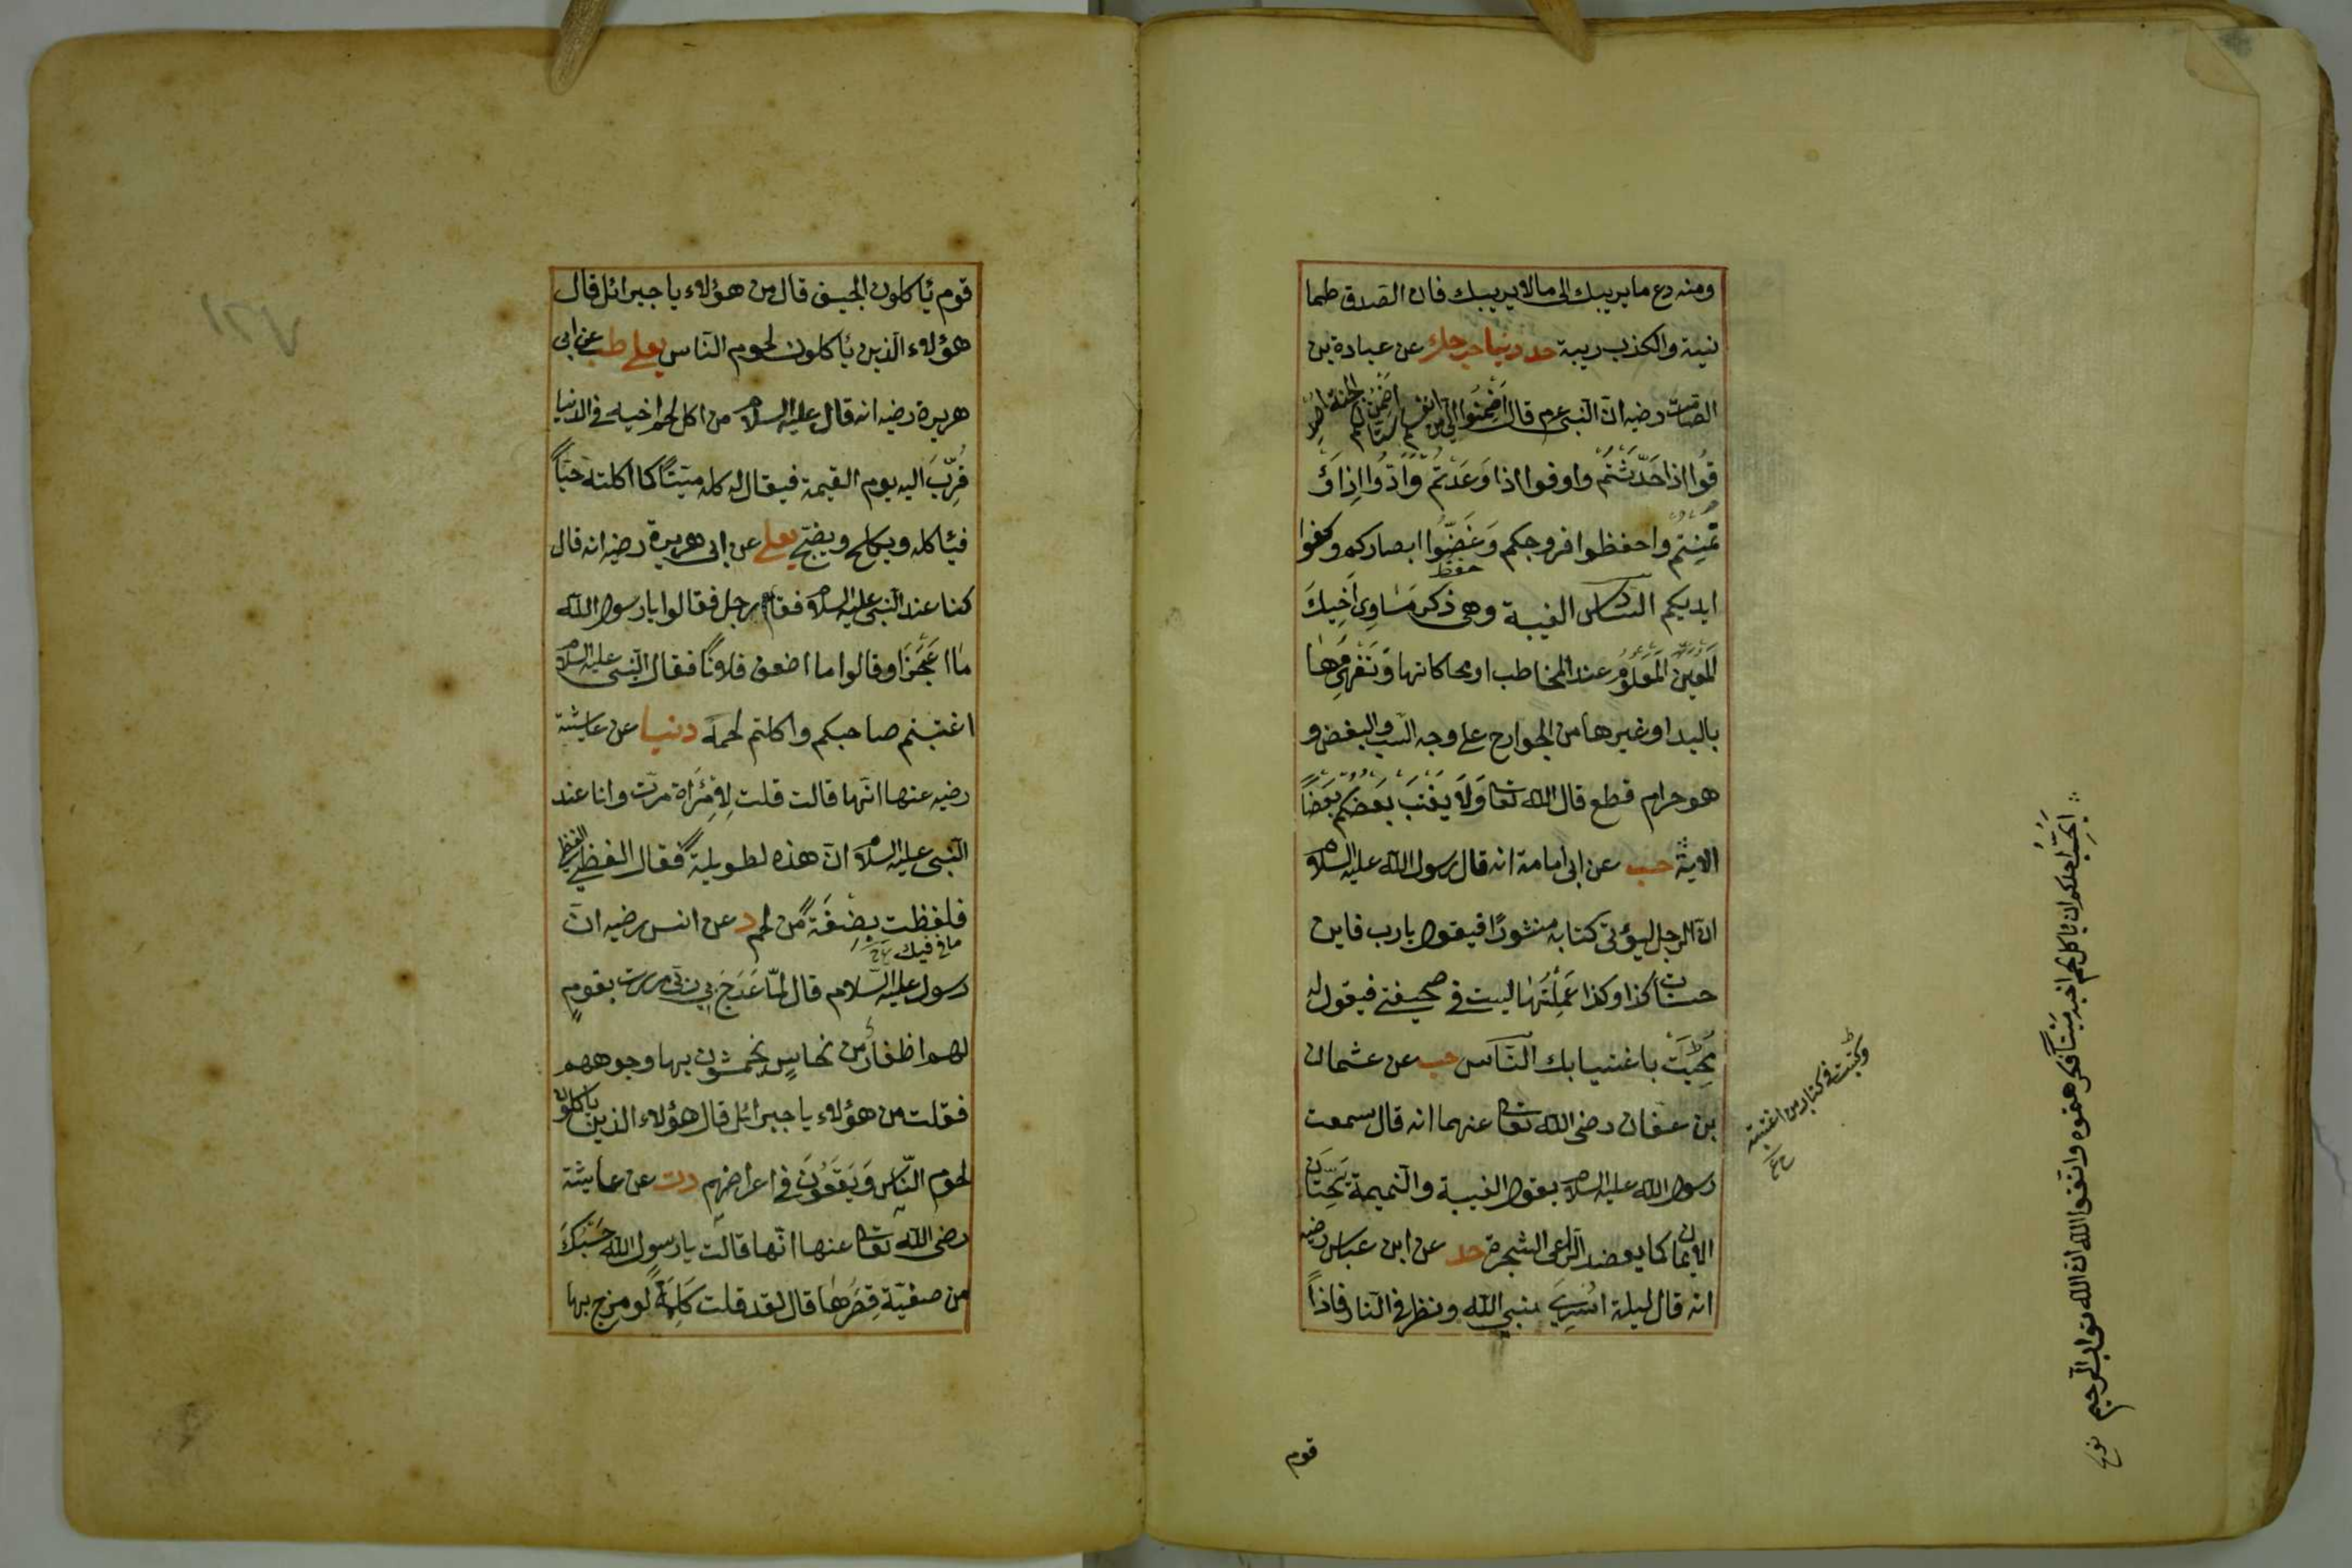 ومنه دع ما يريبك الى مالا يريبك فان الصدق طما
نينة والكذب ريبة حد دنيا حب حك عن عبادة بن
الصامت رضيه انّ النبى عم قال اضمنوا الىّ من انفسكم ستّا اضمن لكم الجنة اصد
قوا اذا حَدّثتُم واوفوا اذا وَعَدتُم وَادّوا اذا اؤ
تمنِتم واحفظوا فروجكم وَغَضّوا ابصاركم وكفوا
ايديكم السادس الغيبة وهى ذكر مَسَاوِى اَخِيكَ
المعين المَعلُوم عند المخاطب او محاكاتها وَتفهيمها
باليد او غيرها من الجوارح على وجه السب والبغض و
هو حرام قطع قال الله تعا وَلَا يَغْتَبْ بَعضكُم بَعضًا
الاية حب عن ابى امامة انه قال رسول الله عليه السلام
انّ الرجل ليؤتى كتابه منشورًا فيقول يا رب فاين
حسنات كذا وكذا عَمِلْتُهَا ليست فى صحيفتى فيقول له
مُحِيَتْ باغتيابك النّاس حب عن عثمان
بن عفان رضى الله تعا عنهما انه قال سمعت
رسول الله عليه السلام يقول الغيبة والنّميمة يَحُتّان
الايمان كما يعضد الرّاعى الشجرة حد عن ابن عباس رضيه
انه قال ليلة اُسْرِىَ بنبى الله ونظر فى النّار فاذًا
قوم
وكتبت فى كتاب من اغتبته
اَيُحِبّ احدكم ان ياكل لحم اخيه مَيْتًا فكرهتموه واتقوا الله ان الله تواب الرّحيم
قوم ئاكلون الجيف قال من هؤلاء يا جبرائل قال
هؤلاء الّذين ئاكلون لحوم النّاس يعلى طب عن ابى
هريرة رضيه انه قال عليه السلام من اكل لحم اخيه فى الدنيا
قُرّبَ اليه يوم القيمة فيقال له كله ميتًا كما اكلته حيّا
فئاكله ويكلح ويضجّ يعلى عن ابى هريرة رضيه انه قال
كنا عند النّبى عليه السلام فقام رجل فقالوا يا رسول الله
ما اَعْجَزَ او قالوا ما اضعف فلانًا فقال النّبى عليه السلام
اغتبتم صاحبكم واكلتم لحمَهُ دنيا عن عايشة
رضيه عنها انّها قالت قلت لِامْرَأة مرّت وانا عند
النّبى عليه السلام انّ هذه لطويلة فقال الفظى الفظى
فلفظت بِضعَةً من لحم د عن انس رضيه انّ
ما فى فيك
رسول عليه السّلام قال لمّا عَرَجَ بِى ربّى مررت بقومٍ
لهم اظفارٌ من نحاسٍ يخمشون بها وجوههم
فقلت من هؤلاء يا جبرائل قال هؤلاء الذين يأكلون
لحوم النّاس وَيَقَعُونَ فى اعراضهم دت عن عايشة
رضى الله تعا عنها انّها قالت يا رسول الله حَسْبُكَ
من صفيّة قِصَرُهَا قال لقد قلت كَلِمَةً لو مزج بها